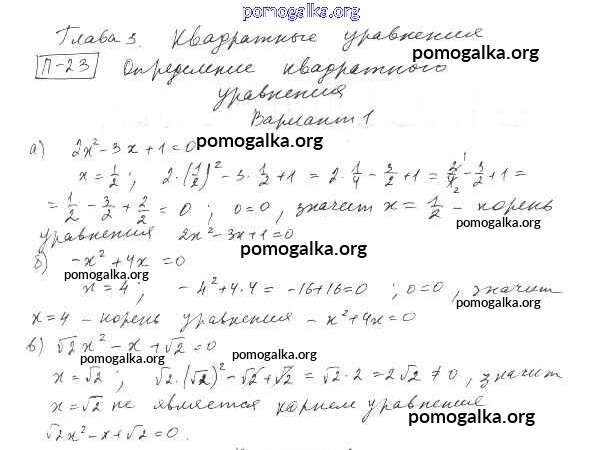 pomogalka.org
Глава 3. Квадратные уравнения
pomogalka.org
П-23 Определение квадратного
уравнения
pomogalka.org
Вариант 1
а) 2x² - 3x + 1 = 0 pomogalka.org
x = 1/2; 2·(1/2)² - 3·1/2 + 1 = 2·1/4 - 3/2 + 1 = 2/4 - 3/2 + 1 =
= 1/2 - 3/2 + 2/2 = 0; 0=0, значит x = 1/2 - корень
pomogalka.org pomogalka.org
уравнения 2x² - 3x + 1 = 0
pomogalka.org
б) -x² + 4x = 0
pomogalka.org
x = 4; -4² + 4·4 = -16 + 16 = 0; 0=0, значит
pomogalka.org
x = 4 - корень уравнения - x² + 4x = 0
в) √2x² - x + √2 = 0
pomogalka.org pomogalka.org
x = √2; √2·(√2)² - √2 + √2 = √2·2 = 2√2 ≠ 0, значит
pomogalka.org
x = √2 не является корнем уравнения
pomogalka.org
√2x² - x + √2 = 0.